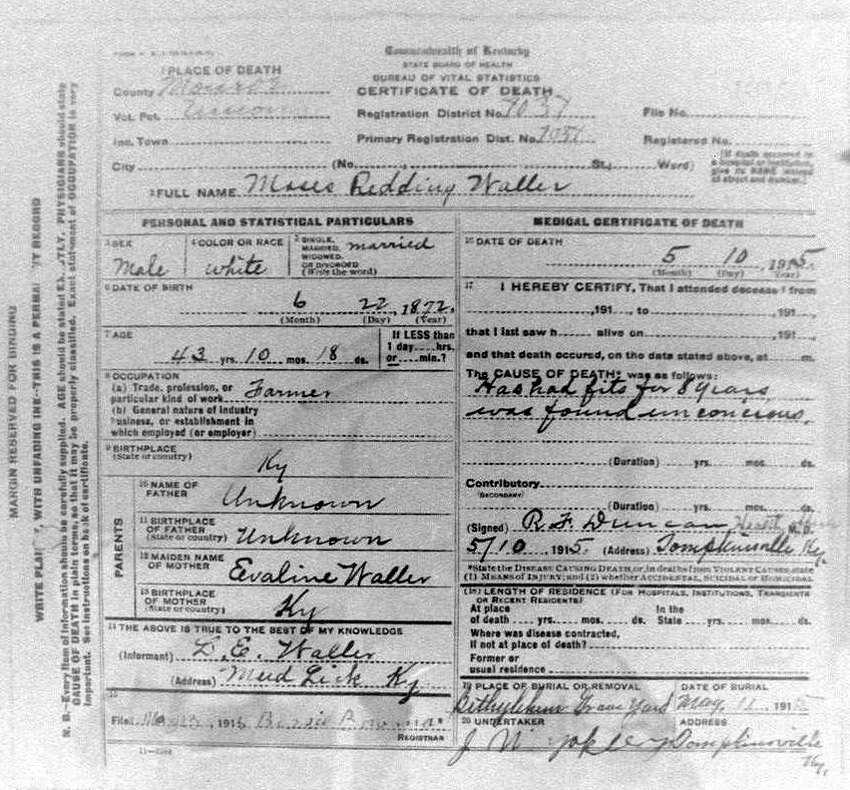 Commonwealth of Kentucky
STATE BOARD OF HEALTH
BUREAU OF VITAL STATISTICS
CERTIFICATE OF DEATH
1 PLACE OF DEATH
County Monroe
Vot. Pct.
Inc. Town
City (No. St.; Ward)
Registration District No. 1037
Primary Registration Dist. No.
File No.
Registered No.
[If death occurred in
a hospital or institution,
give its NAME instead
of street and number.]
2 FULL NAME Moses Redding Waller
PERSONAL AND STATISTICAL PARTICULARS
3 SEX
Male
4 COLOR OR RACE
white
5 SINGLE,
MARRIED,
WIDOWED,
OR DIVORCED
(Write the word)
married
6 DATE OF BIRTH
6 22, 1872.
(Month) (Day) (Year)
7 AGE
43 yrs. 10 mos. 18 ds.
If LESS than
1 day....hrs.
or....min.?
8 OCCUPATION
(a) Trade, profession, or
particular kind of work Farmer
(b) General nature of industry
business, or establishment in
which employed (or employer)
9 BIRTHPLACE
(State or country)
Ky
PARENTS
10 NAME OF
FATHER
Unknown
11 BIRTHPLACE
OF FATHER
(State or country)
Unknown
12 MAIDEN NAME
OF MOTHER
Evaline Waller
13 BIRTHPLACE
OF MOTHER
(State or country)
Ky
14 THE ABOVE IS TRUE TO THE BEST OF MY KNOWLEDGE
(Informant) D. E. Waller
(Address) Mud Lick Ky
15
Filed 1915
REGISTRAR
MEDICAL CERTIFICATE OF DEATH
16 DATE OF DEATH
5 10, 1915
(Month) (Day) (Year)
17 I HEREBY CERTIFY, That I attended deceased from
,191 , to ,191
that I last saw h alive on ,191
and that death occured, on the date stated above, at m.
The CAUSE OF DEATH* was as follows:
Has had fits for 8 years
was found unconcious.
(Duration) yrs. mos. ds.
Contributory
(SECONDARY)
(Duration) yrs. mos. ds.
(Signed) R. F. Duncan M. D.
5/10, 1915. (Address) Tompkinsville Ky.
*State the DISEASE CAUSING DEATH, or, in deaths from VIOLENT CAUSES, state
(1) MEANS OF INJURY; and (2) whether ACCIDENTAL, SUICIDAL or HOMICIDAL
(18) LENGTH OF RESIDENCE (FOR HOSPITALS, INSTITUTIONS, TRANSIENTS
OR RECENT RESIDENTS)
At place In the
of death yrs. mos. ds. State yrs. mos. ds.
Where was disease contracted,
if not at place of death?
Former or
usual residence
19 PLACE OF BURIAL OR REMOVAL DATE OF BURIAL
Grave Yard May 1915
20 UNDERTAKER ADDRESS
J Tompkinsville
Ky.
11-3184
MARGIN RESERVED FOR BINDING
WRITE WITH UNFADING INK--THIS IS A RECORD
N. B.--Every item of information should be carefully supplied. AGE should be stated PHYSICIANS should state
CAUSE OF DEATH in plain terms, so that it may be properly classified. Exact statement of OCCUPATION is very
important. See instructions on back of certificate.